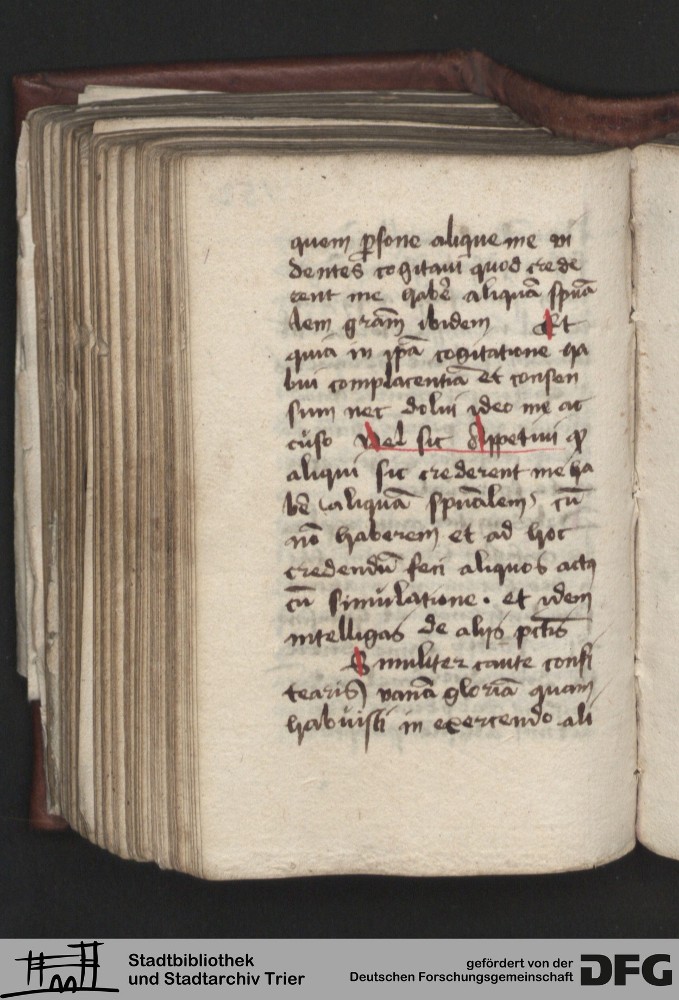 quem p̱sone alique me vi
dentes cogitaui quod crede
rent me haber̃ aliquā spūa
lem grām ibidem Et
quia in ip̄a cogitatione ha
bui complacentiā et consen
sum nec dolui ideo me ac
cuso Vel sic Appetiui ꝙ
aliqui sic crederent me ha
bē aliquā spūalem cū
nō haberem et ad hoc
credendū feci aliquos actꝰ
cū simulatione. et idem
intelligas de alijs pctīs
Similiter caute confi
tearis vanā gloriā quam
habuisti in exercendo ali
Stadtbibliothek
und Stadtarchiv Trier
gefördert von der
Deutschen Forschungsgemeinschaft
DFG